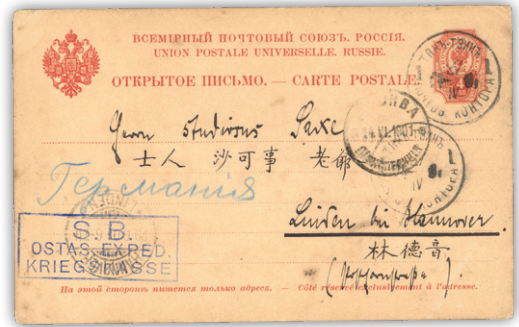 ВСЕМІРНЫЙ ПОЧТОВЫЙ СОЮЗЪ. РОССІЯ.
UNION POSTALE UNIVERSELLE. RUSSIE.
ОТКРЫТОЕ ПИСЬМО. — CARTE POSTALE.
Herrn Studiosus
士人 沙可事 老爺
Германія
Linden bei Hannover.
林德音
S. B.
OSTAS. EXPED.
KRIEGSKASSE
На этой сторонѣ пишется только адресъ. — Côté réservé exclusivement à l'adresse.